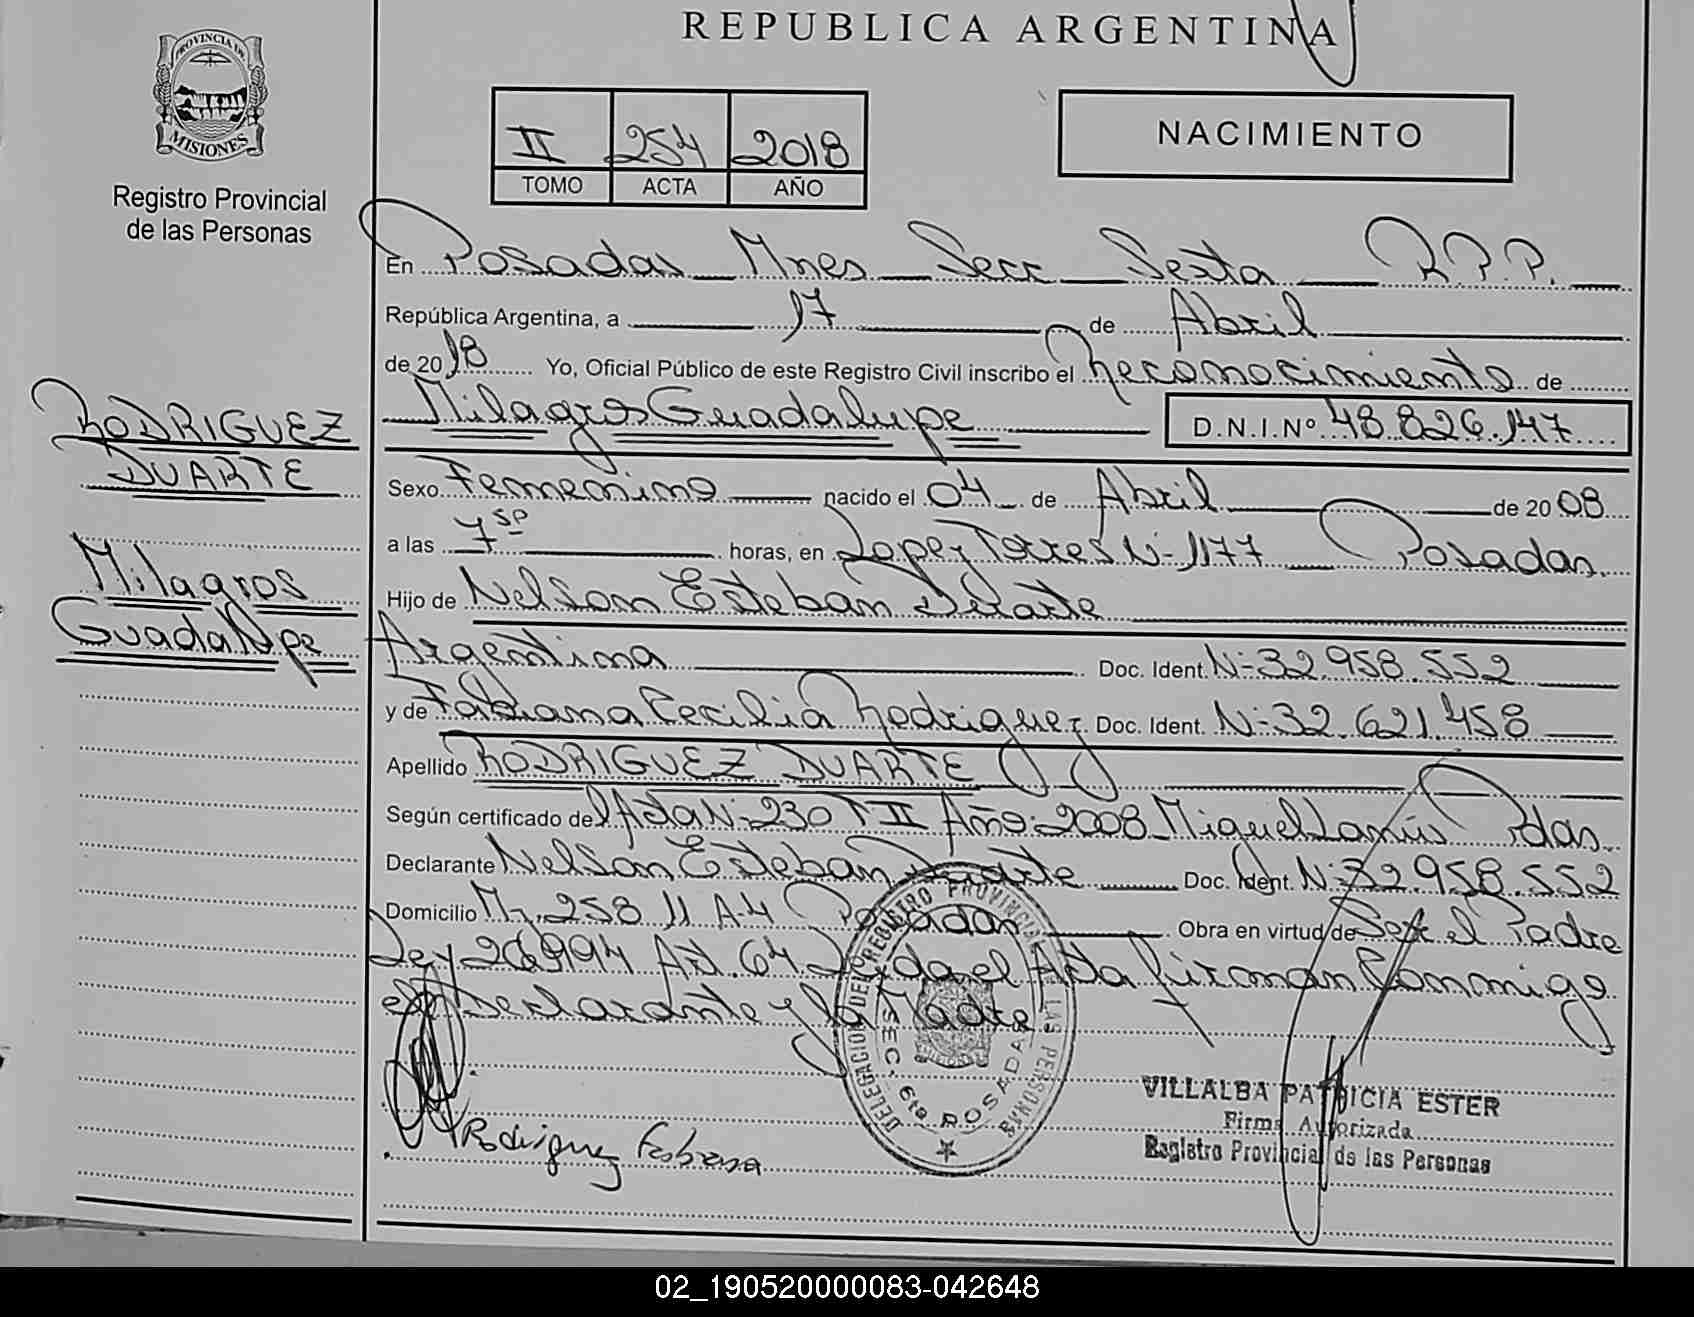 REPUBLICA ARGENTINA
PROVINCIA DE
MISIONES
Registro Provincial
de las Personas
II 254 2018
TOMO ACTA AÑO
NACIMIENTO
En Posadas Mnes Secc Sexta R.P.P.
República Argentina, a 17 de Abril
de 2018 Yo, Oficial Público de este Registro Civil inscribo el Reconocimiento de
Milagros Guadalupe D.N.I.Nº 48.826.147
RODRIGUEZ
DUARTE
Milagros
Guadalupe
Sexo Femenino nacido el 04 de Abril de 2008
a las 7 horas, en Lopez Torres N- 1177 Posadas.
Hijo de Nelson Esteban Duarte
Argentina Doc. Ident. N- 32.958.552
y de Fabiana Cecilia Rodriguez Doc. Ident. N- 32.621.458
Apellido RODRIGUEZ DUARTE
Según certificado del Acta N- 230 T II Año 2008 Miguel Lanús Pdas.
Declarante Nelson Esteban Duarte Doc. Ident. N- 32.958.552
Domicilio Mz. 258 11 A-4 Posadas Obra en virtud de Ser el Padre
Ley 26994 Art. 64 Leida el Acta firman Conmigo
el Declarante y la Madre
DELEGACION DEL REGISTRO PROVINCIAL DE LAS PERSONAS
SEC. 6ta POSADAS
Rodriguez Fabiana
VILLALBA PATRICIA ESTER
Firma Autorizada
Registro Provincial de las Personas
02_190520000083-042648